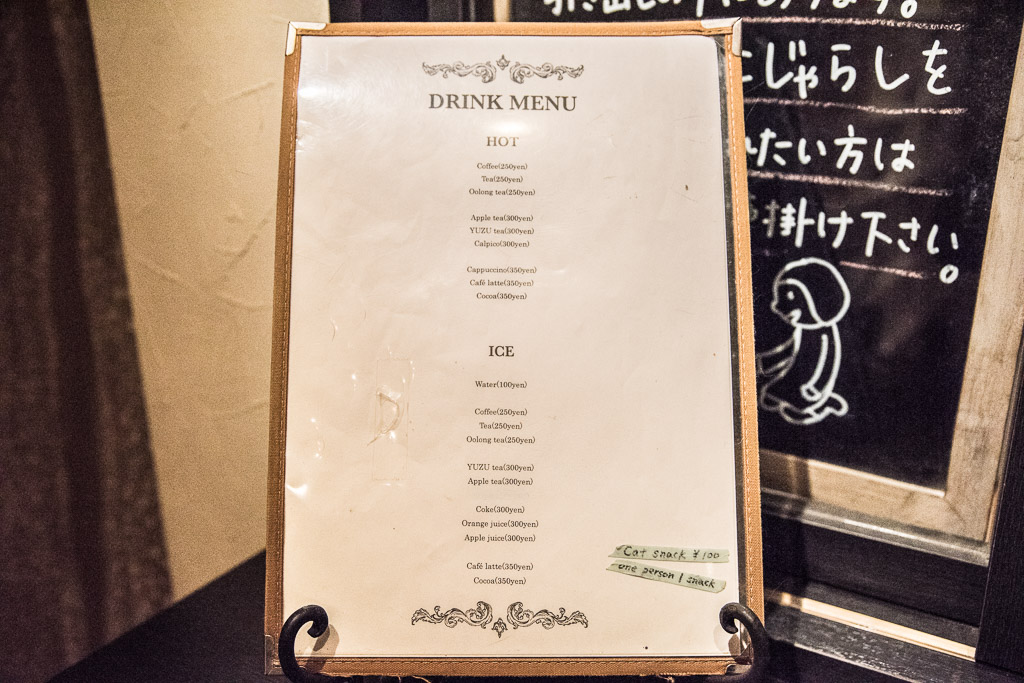 DRINK MENU
HOT
Coffee(250yen)
Tea(250yen)
Oolong tea(250yen)
Apple tea(300yen)
YUZU tea(300yen)
Calpico(300yen)
Cappuccino(350yen)
Café latte(350yen)
Cocoa(350yen)
ICE
Water(100yen)
Coffee(250yen)
Tea(250yen)
Oolong tea(250yen)
YUZU tea(300yen)
Apple tea(300yen)
Coke(300yen)
Orange juice(300yen)
Apple juice(300yen)
Café latte(350yen)
Cocoa(350yen)
Cat snack ¥100
one person 1 snack
じゃらしを
たい方は
掛け下さい。